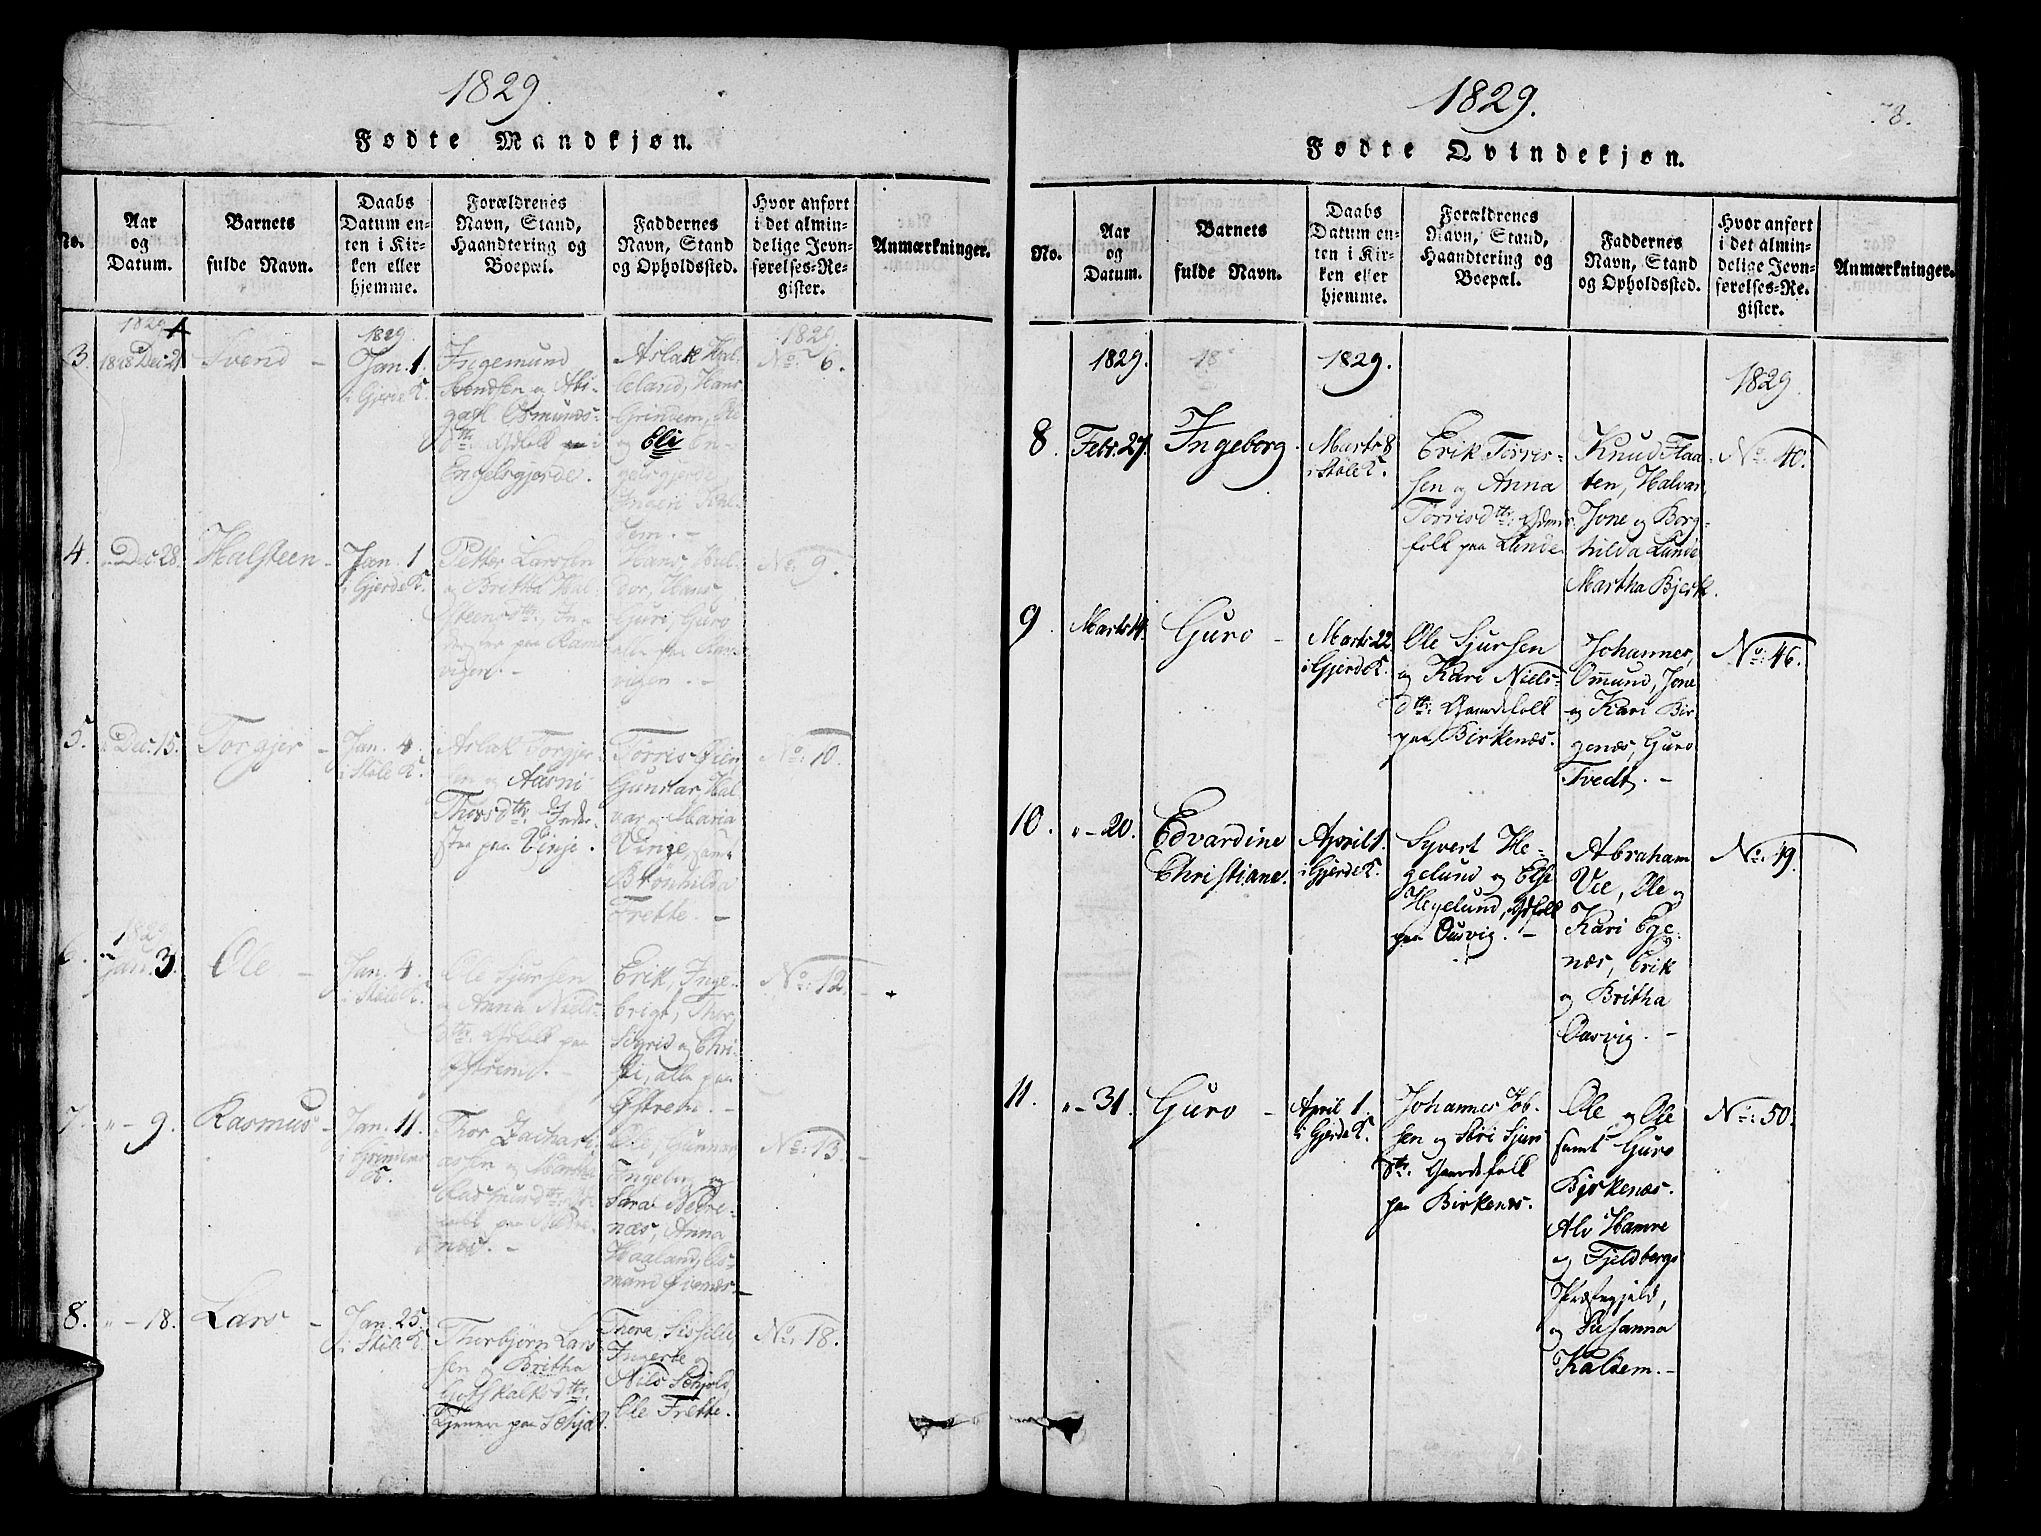 1829.
Fødte Mandkjøn.
No.
Aar
og
Datum.
Barnets
fulde Navn.
Daabs
Datum en-
ten i Kir-
ken eller
hjemme.
Forældrenes
Navn, Stand,
Haandtering og
Boepæl.
Faddernes
Navn, Stand
og Opholdssted.
Hvor anført
i det almin-
delige Jevn-
førelses-Re-
gister.
Anmærkninger.
3.
Svend -
1829
Jan. 1.
i Gjerde K.
Ingemund
Svendsen og Abi-
gael Osmunds-
dtr.
i
Engelsgjerde.
Aslak Hal-
seland, Hans
Grindem,
og Eli En-
gelsgjerde
Ingeri
1829.
No: 6.
4.
" Dec. 28.
Halsteen -
Jan. 1
i Gjerde K.
Petter Larssen
og Britha Hal-
steensdtr.
paa Ram-
vigen. -
Hans, Hal-
dor, Hans
Guri, Guro
alle paa Ram-
vigen. -
No: 9.
5.
" Dec. 15.
Torgjer -
Jan. 4.
i Støle K.
Aslak Torgjer-
sen og Aasni
Thorsdtr. Inder-
ster paa Vinje.
Torris Øien
Gunnar Hal-
var og Maria
Vinje, samt
Brønhilda
Frette. -
No: 10.
6.
1829
Jan. 3.
Ole -
Jan. 4.
i Støle K.
Ole Sjursen
og Anna Niels-
dtr. paa
Østrem. -
Erik, Inge-
brigt, Thor,
Sigrid og Chri-
sti, alle paa
Østrem. -
No: 12.
7.
" - 9.
Rasmus -
Jan. 11.
i Grindems
K.
Thor Zachari-
assen og Martha
Rasmusdtr.
paa Nedre-
næs. -
Ole, Gunnar
Ingebor og
Sara Nedre-
næs, Anna
Haaland, Os-
mund Øienæs. -
No: 13.
8.
" - 18.
Lars -
Jan. 25.
i Støle K.
Thorbjørn Lars-
sen og Britha
Gotskalksdtr.
paa
Thora, Sissilie
Ingerte og
Nils
Ole Frette.
No: 18.
1829.
78.
Fødte Qvindekjøn.
No.
Aar
og
Datum.
Barnets
fulde Navn.
Daabs
Datum en-
ten i Kir-
ken eller
hjemme.
Forældrenes
Navn, Stand,
Haandtering og
Boepæl.
Faddernes
Navn, Stand
og Opholdssted.
Hvor anført
i det almin-
delige Jevn-
førelses-Re-
gister.
Anmærkninger.
1829.
18
1829.
1829.
8.
Febr. 27.
Ingeborg.
Marts 8
i Støle K.
Erik Torris-
sen og Anna
Torrisdtr.
folk paa Lunde
Knud Flaa-
ten, Halvar,
Jone og Borg-
hilda Lunde
Martha Bjerk.
No: 40.
9.
Marts 14.
Guro -
Marts 22
i Gjerde K.
Ole Sjursen
og Kari Niels-
dtr. Gaardsfolk
paa Birkenæs.
Johannes,
Omund, Jone
og Kari Bir-
genæs, Guro
Tvedt. -
No: 46.
10.
" - 20.
Edvardine
Christiane.
April 1.
i Gjerde K.
Syvert He-
gelund og Else
Hegelund,
paa Ousvig. -
Abraham
Vee, Ole og
Kari Ege-
næs, Erik
og Britha
Ousvig. -
No: 49.
11.
" - 31.
Guro -
April 1.
i Gjerde K.
Johannes Job-
sen og Siri Sjurs
dtr. Gaardsfolk
paa Birkenæs.
Ole og Ole
samt Guro
Birkenæs.
Alv Hamre
og Fjeldbergs
Præstegjeld,
og Susanna
Kaldem. -
No: 50.